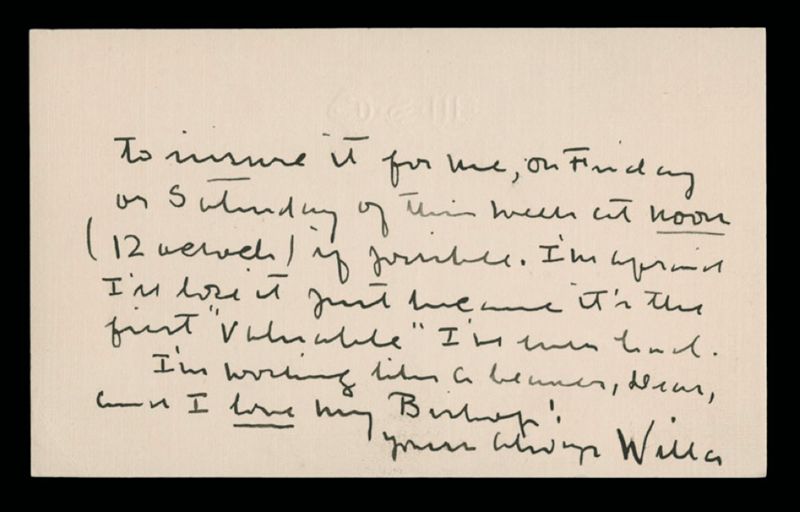 to insure it for me, on Friday
or Saturday of this week at noon
(12 oclock) if possible. I'm afraid
I'll lose it just because it's the
first "valuable" I've ever had.
I'm working like a beaver, dear,
and I love my Bishop!
yours always Willa